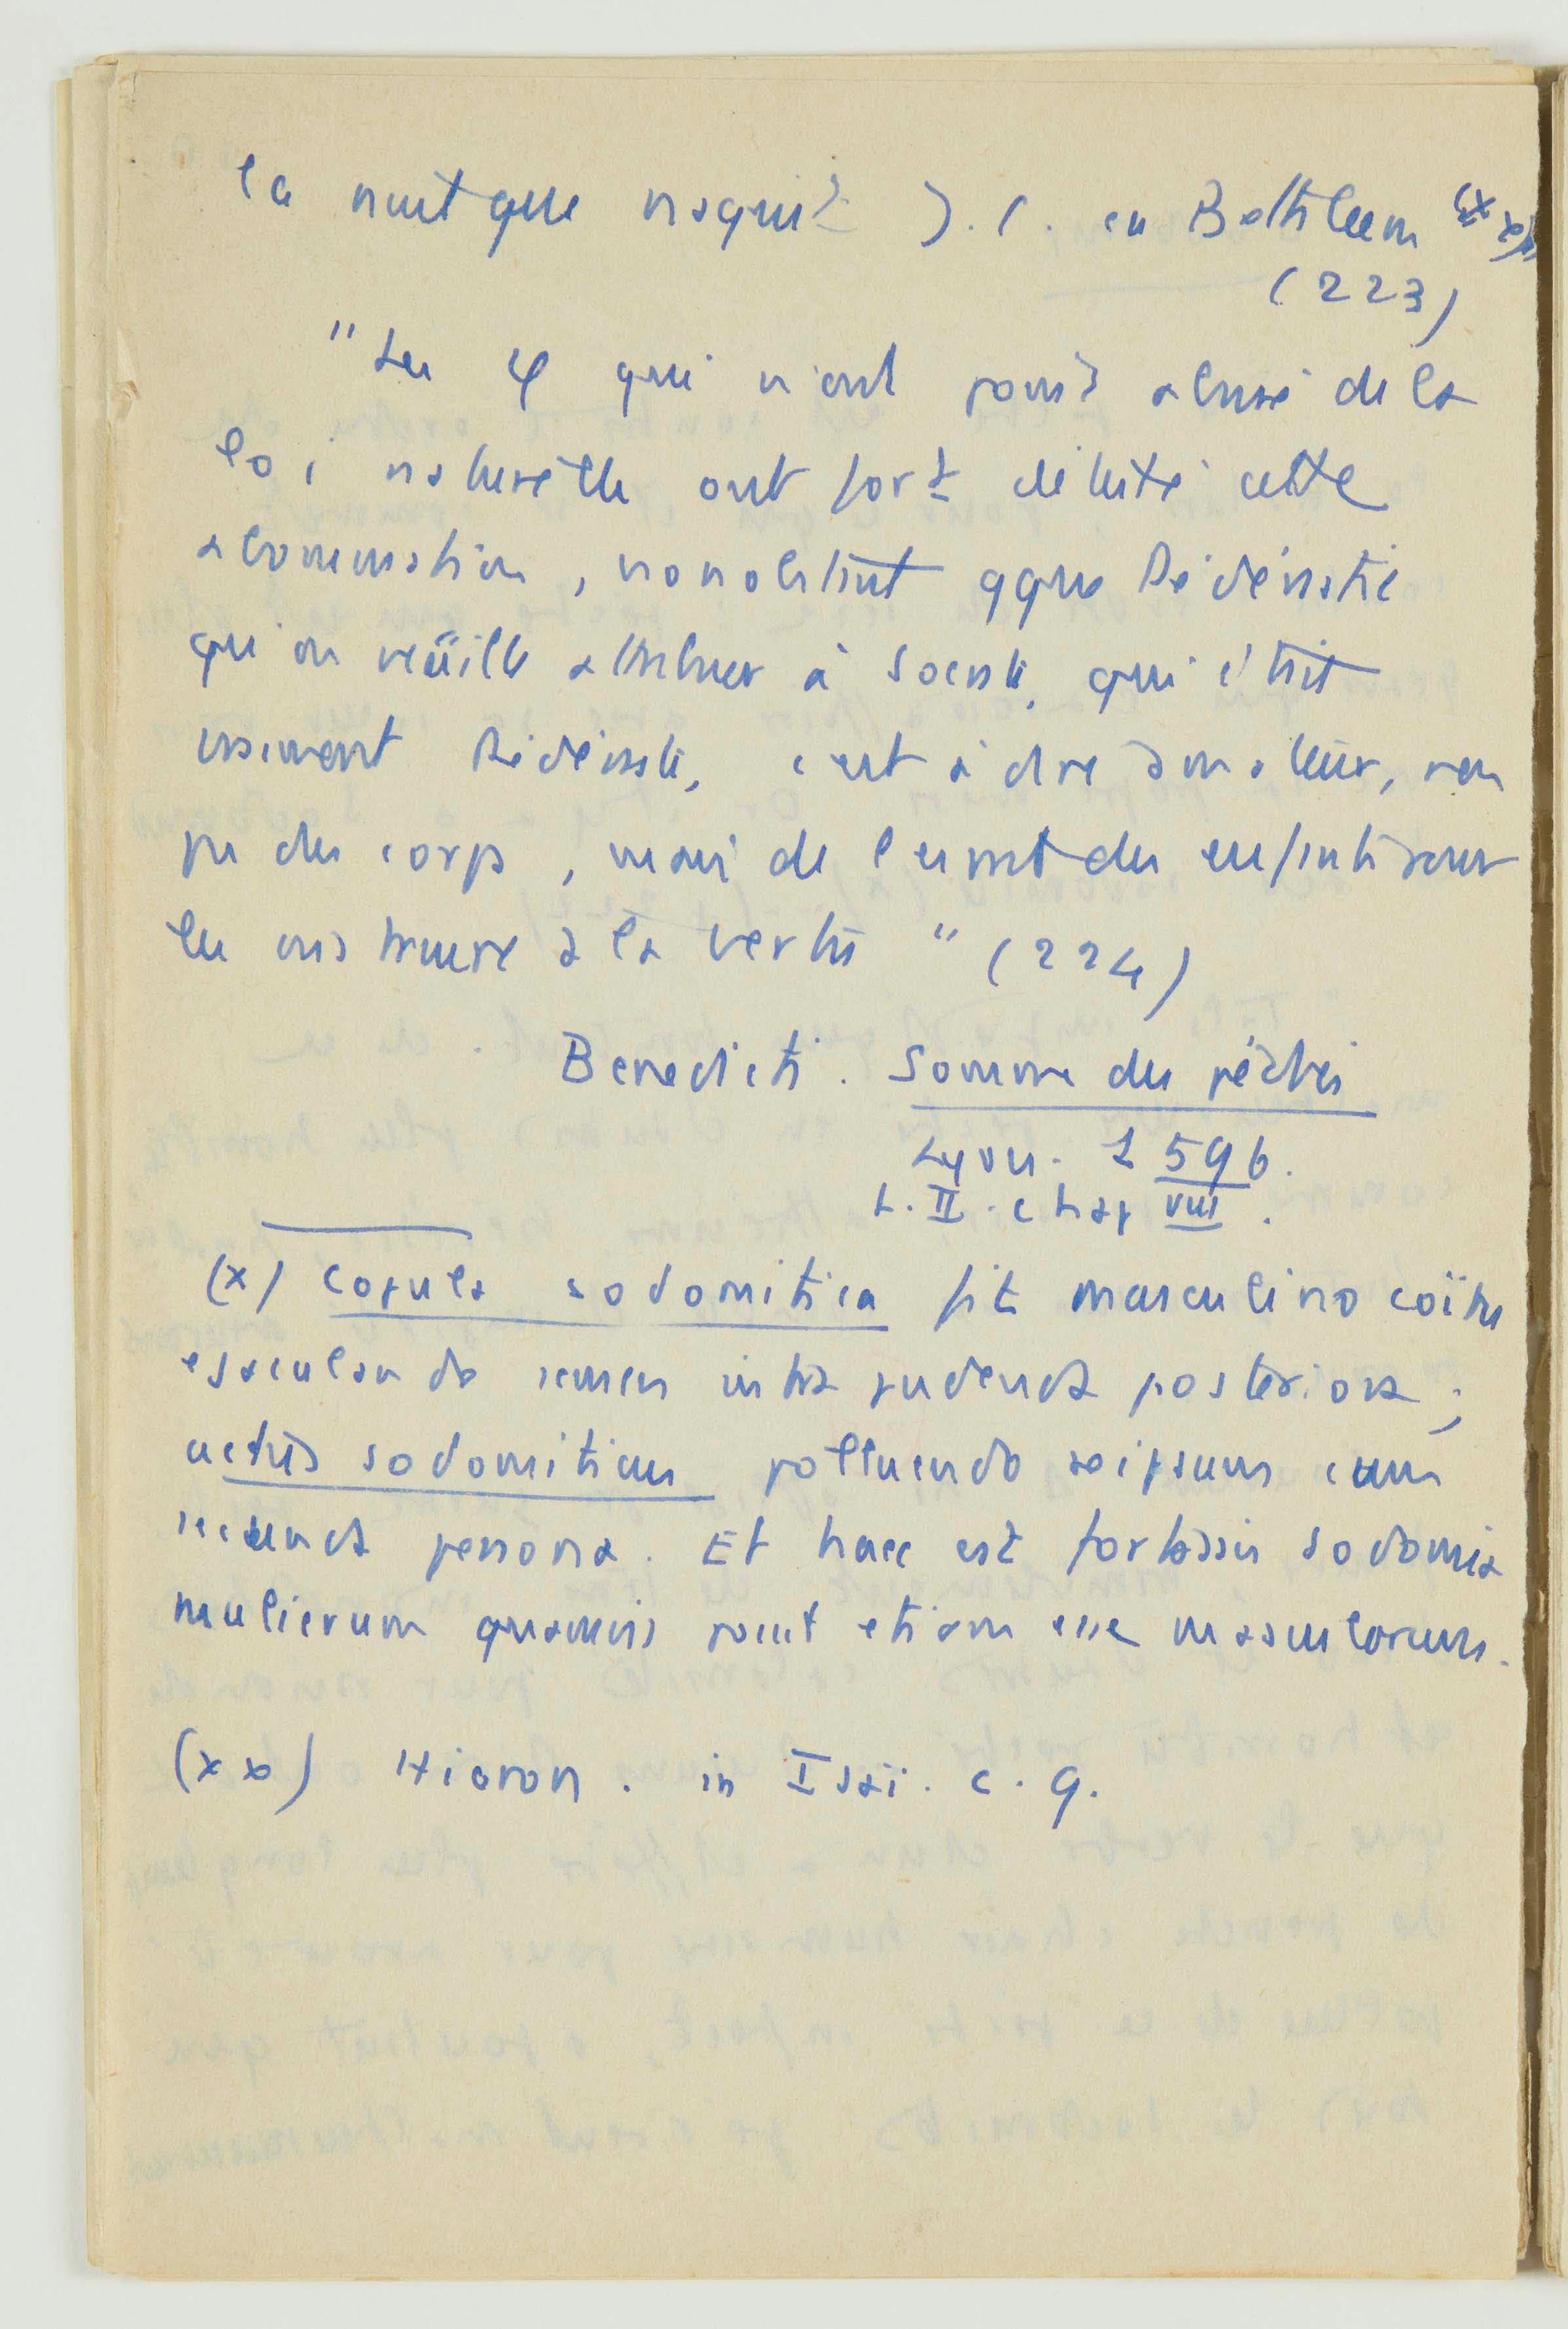 la nuit que naquit J. C. en Bethleem (xx)
(223)
"Les φ qui n'ont point abusé de la
loi naturelle ont fort détesté cette
abomination, nonobstant qque Pédérastie
qu'on veüille attribuer à Socrate, qui était
vraiment Pédéraste, c'est à dire amateur, non
pas des corps, mais de l'esprit des enfants pour
les instruire à la vertu" (224)
Benedicti. Somme des péchés
Lyon. 1596.
L. II. chap VIII.
(x) Copula sodomitica fit masculino coïtu
ejaculando semen intra pudenda posteriora;
actus sodomiticus polluendo seipsum cum
secunda persona. Et haec est fortassis sodomia
mulierum quamvis possit etiam esse masculorum.
(xx) Hieron. in Isaï. c. 9.